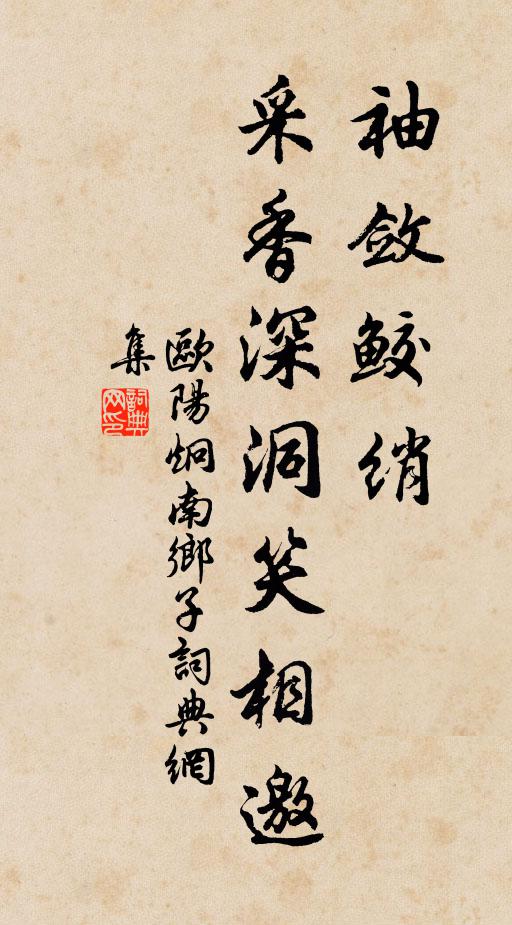 袖斂鮫綃
采香深洞笑相邀
歐陽炯南鄉子詞典網
集
詞典网印